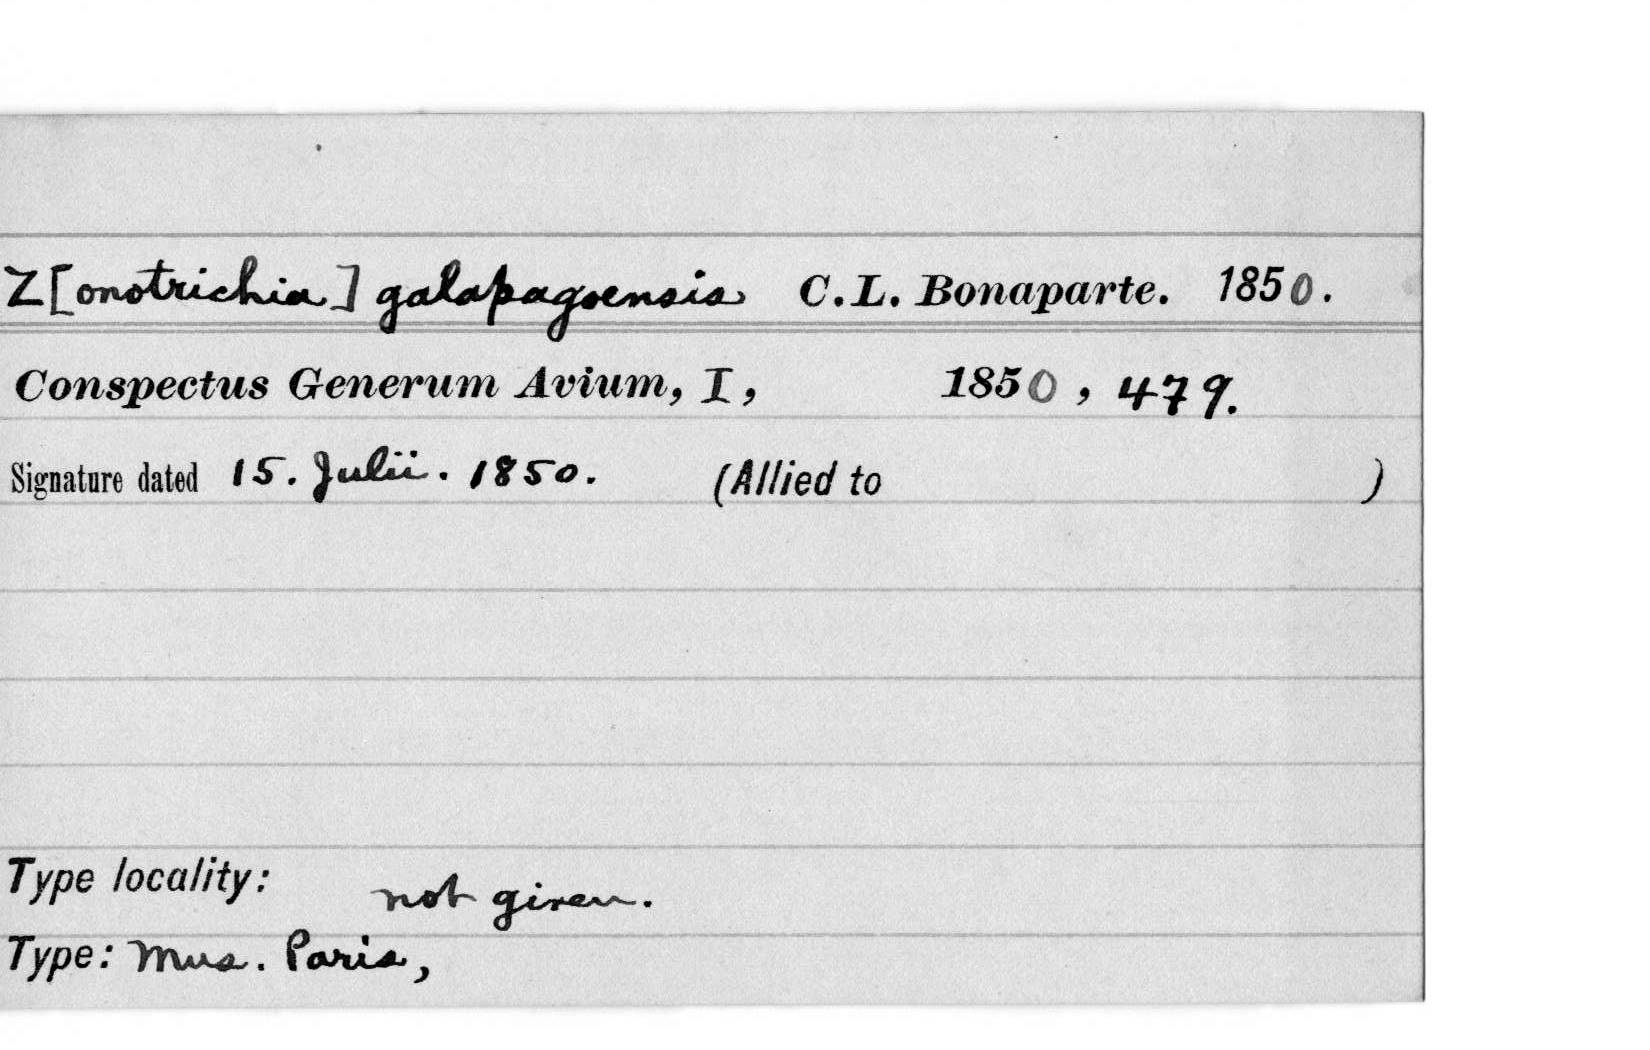 Z[onotrichia] galapagoensis C.L. Bonaparte. 1850.
Conspectus Generum Avium, I, 1850, 479.
Signature dated 15. Julii. 1850. (Allied to )
Type locality: not given.
Type: Mus. Paris,